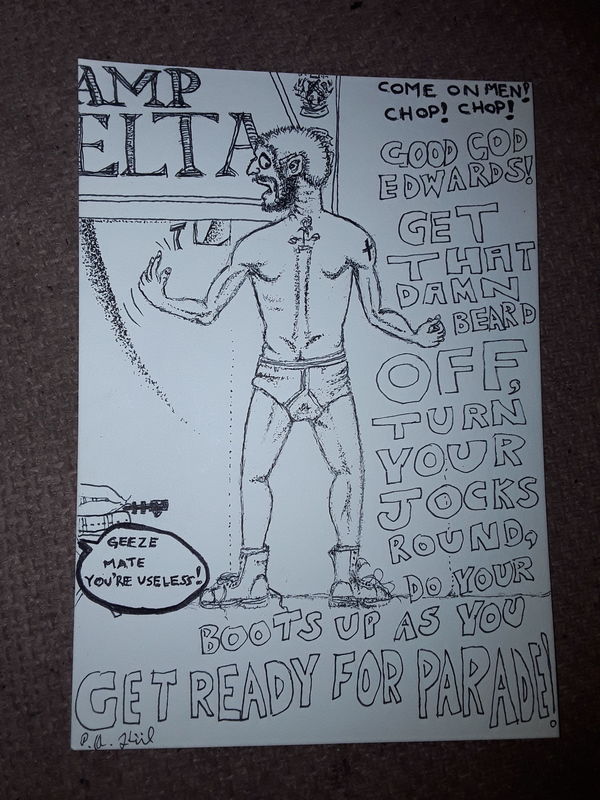 AMP
ELTA
COME ON MEN!
CHOP! CHOP!
GOOD GOD
EDWARDS!
GET
THAT
DAMN
BEARD
OFF,
TURN
YOUR
JOCKS
ROUND,
DO YOUR
BOOTS UP AS YOU
GET READY FOR PARADE!
GEEZE
MATE
YOU'RE USELESS!